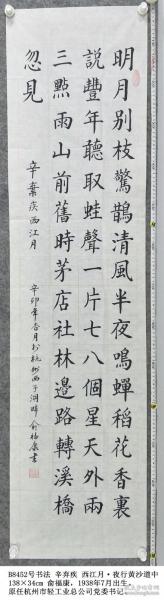 明月别枝驚鵲清風半夜鳴蟬稻花香裏
説豐年聽取蛙聲一片七八個星天外兩
三點雨山前舊時茅店社林邊路轉溪橋
忽見
辛棄疾西江月
辛卯年杏月於杭州西子湖畔俞福康書
B8452号书法 辛弃疾 西江月·夜行黄沙道中
138×34cm 俞福康，1938年7月出生，
原任杭州市轻工业总公司党委书记。